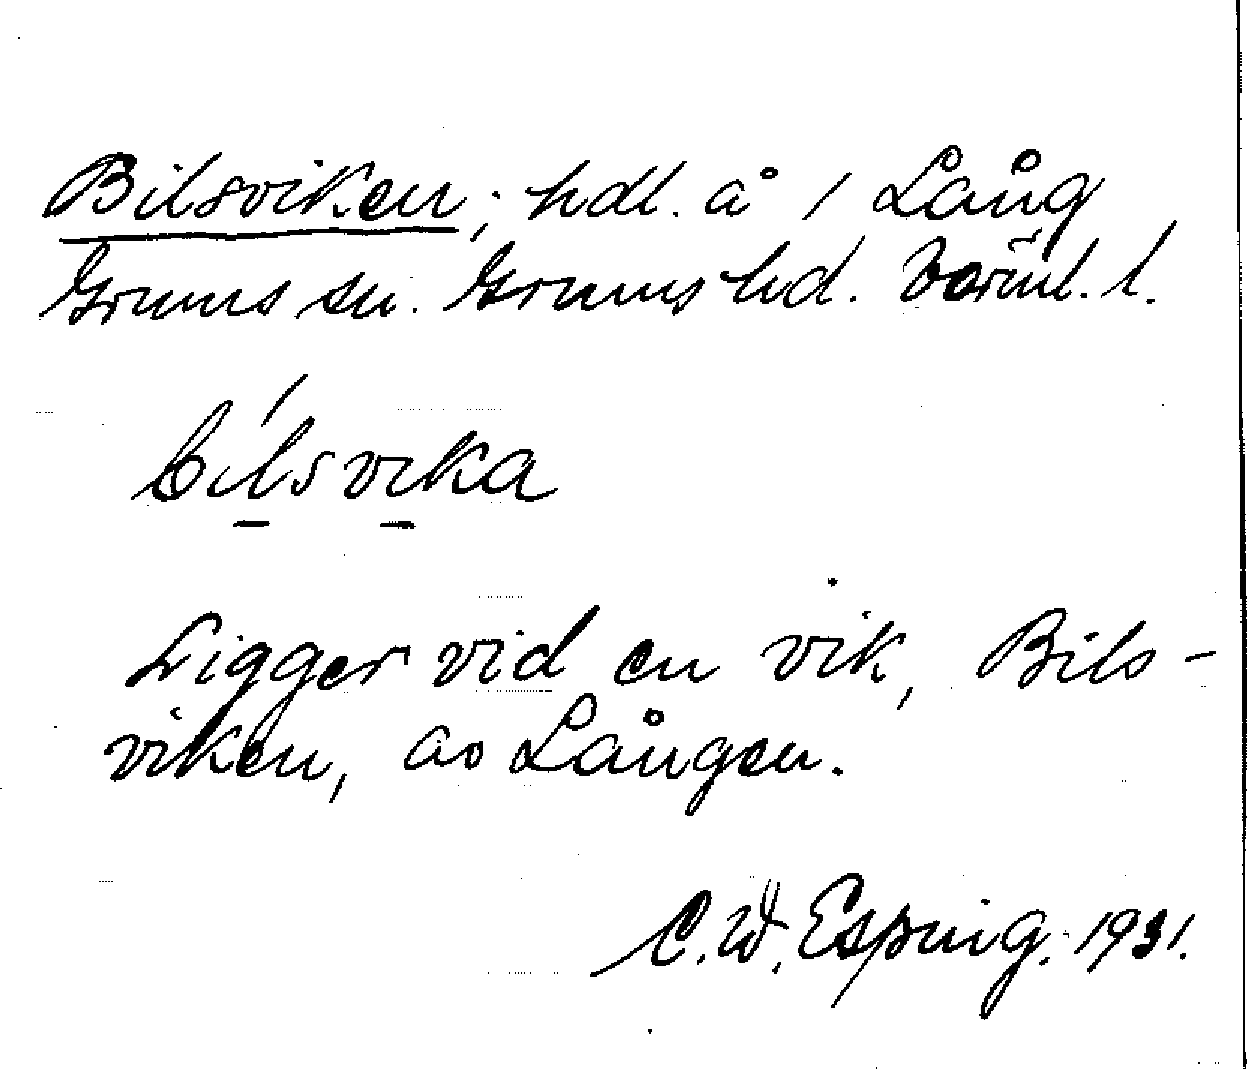 Bilsviken; hdl. å 1 Lång
Grums sn. Grums hd. Värml. l.
bilsvika
Ligger vid en vik, Bils-
viken, av Lången.
C. W. Esping. 1931.